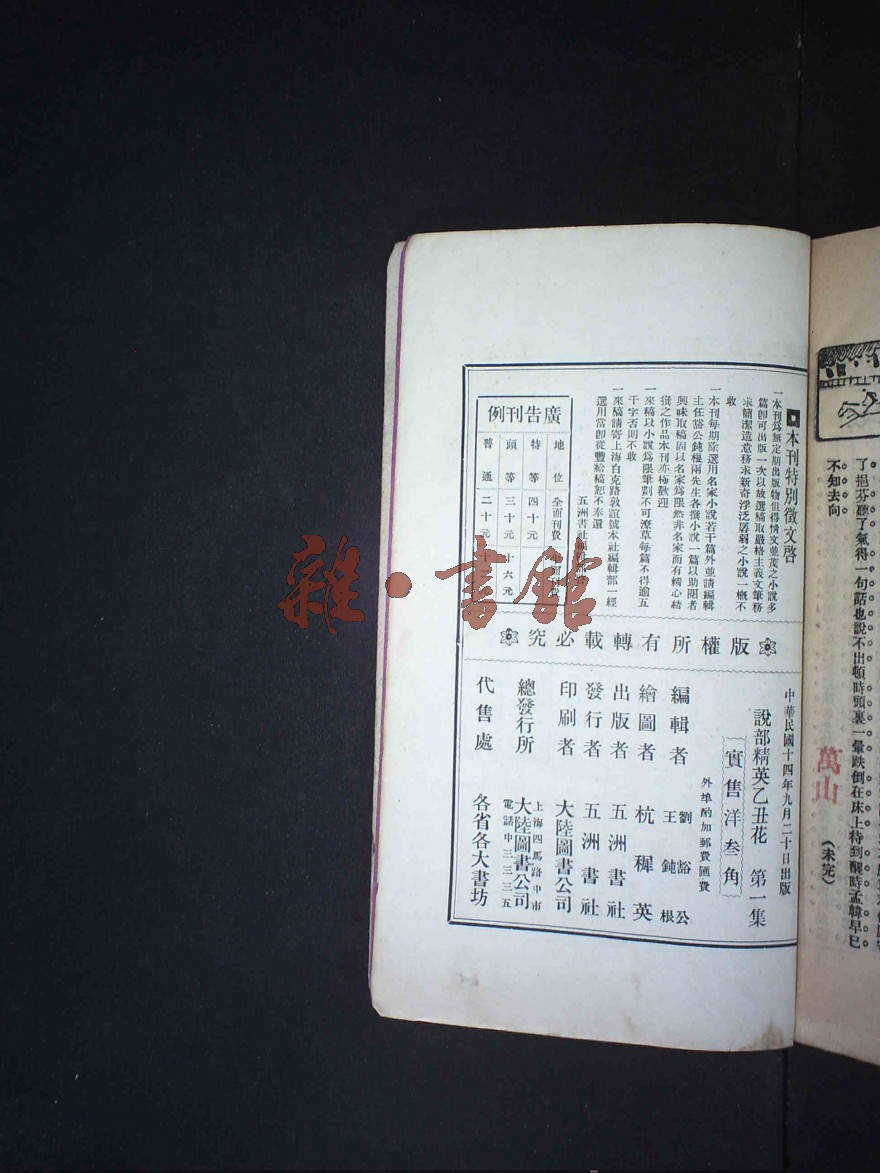 了挹芬聽了氣得一句話也說不出頓時頭裏一暈跌倒在床上待到醒時孟韓早已
不知去向
(未完)
萬山
本刊特別徵文啓
一本刊爲無定期出版物但得情文並茂之小說多
篇卽可出版一次以故選稿取嚴格主義文筆務
求簡潔造意務求新奇浮泛孱弱之小說一槪不
收
一本刊每期除選用名家小說若干篇外並請編輯
主任豁公鈍根兩先生各撰小說一篇以助閱者
興味取稿固以名家爲限然非名家而有精心結
撰之作品本刊亦極歡迎
一來稿以小說爲限筆劃不可潦草每篇不得逾五
千字否則不收
一來稿請寄上海白克路敦誼號本社編輯部一經
選用當卽從豐給稿恕不奉還
五洲書社
廣告刊例
地位 全面刊費
特等 四十元
頭等 三十元 十六元
普通 二十元
版權所有轉載必究
中華民國十四年九月二十日出版
說部精英乙丑花 第一集
實售洋叁角
外埠酌加郵費匯費
編輯者 劉豁公 王鈍根
繪圖者 杭穉英
出版者 五洲書社
發行者 五洲書社
印刷者 大陸圖書公司
總發行所 上海四馬路中市 大陸圖書公司 電話中三三三五
代售處 各省各大書坊
雜·書館